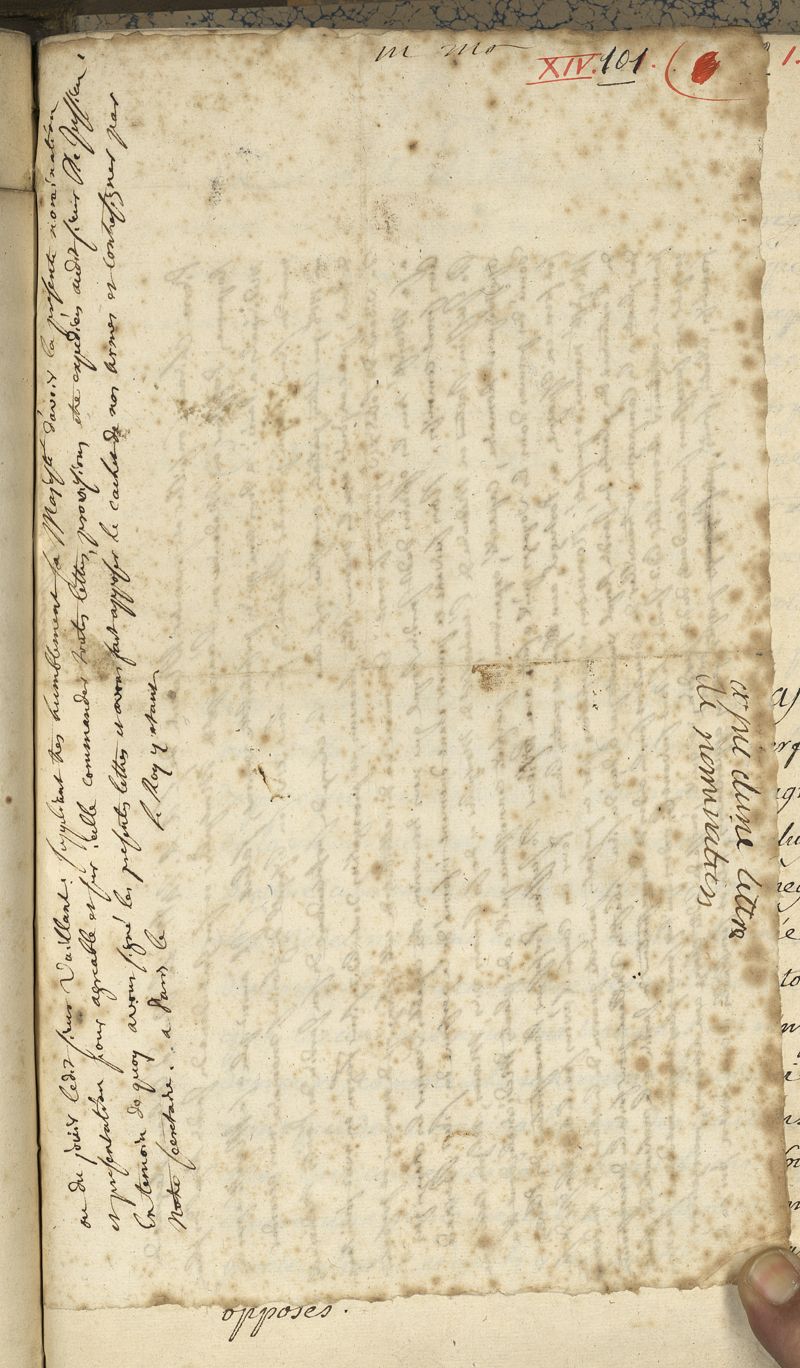 XIV. 101.
ou du jouir ledit sieur Vaillant. suppliant tres humblement sa Majesté d'avoir la présente nomination
et presentation pour agreable et sur icelle commander toutes lettres, provisions, etre expediées audit sieur De
En temoin de quoy avons signé les presentes lettres et avons fait apposer le cachet de nos armes et contresigner par
Notre secretaire. a Paris le le Roy y etant
copie dune lettre
de nomination
opposes.